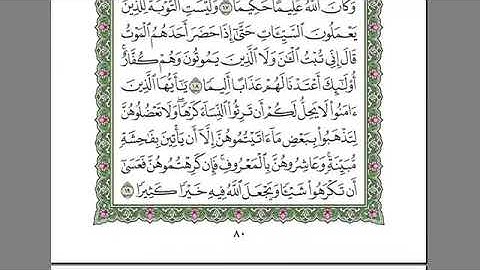 وَكَانَ ٱللَّهُ عَلِيمًا حَكِيمًا ١٧ وَلَيْسَتِ ٱلتَّوْبَةُ لِلَّذِينَ
يَعْمَلُونَ ٱلسَّيِّـَٔاتِ حَتَّىٰٓ إِذَا حَضَرَ أَحَدَهُمُ ٱلْمَوْتُ
قَالَ إِنِّى تُبْتُ ٱلْـَٰٔنَ وَلَا ٱلَّذِينَ يَمُوتُونَ وَهُمْ كُفَّارٌ
أُو۟لَـٰٓئِكَ أَعْتَدْنَا لَهُمْ عَذَابًا أَلِيمًا ١٨ يَـٰٓأَيُّهَا ٱلَّذِينَ
ءَامَنُوا۟ لَا يَحِلُّ لَكُمْ أَن تَرِثُوا۟ ٱلنِّسَآءَ كَرْهًا وَلَا تَعْضُلُوهُنَّ
لِتَذْهَبُوا۟ بِبَعْضِ مَآ ءَاتَيْتُمُوهُنَّ إِلَّآ أَن يَأْتِينَ بِفَـٰحِشَةٍ
مُّبَيِّنَةٍ وَعَاشِرُوهُنَّ بِٱلْمَعْرُوفِ فَإِن كَرِهْتُمُوهُنَّ فَعَسَىٰٓ
أَن تَكْرَهُوا۟ شَيْـًٔا وَيَجْعَلَ ٱللَّهُ فِيهِ خَيْرًا كَثِيرًا ١٩
٨٠